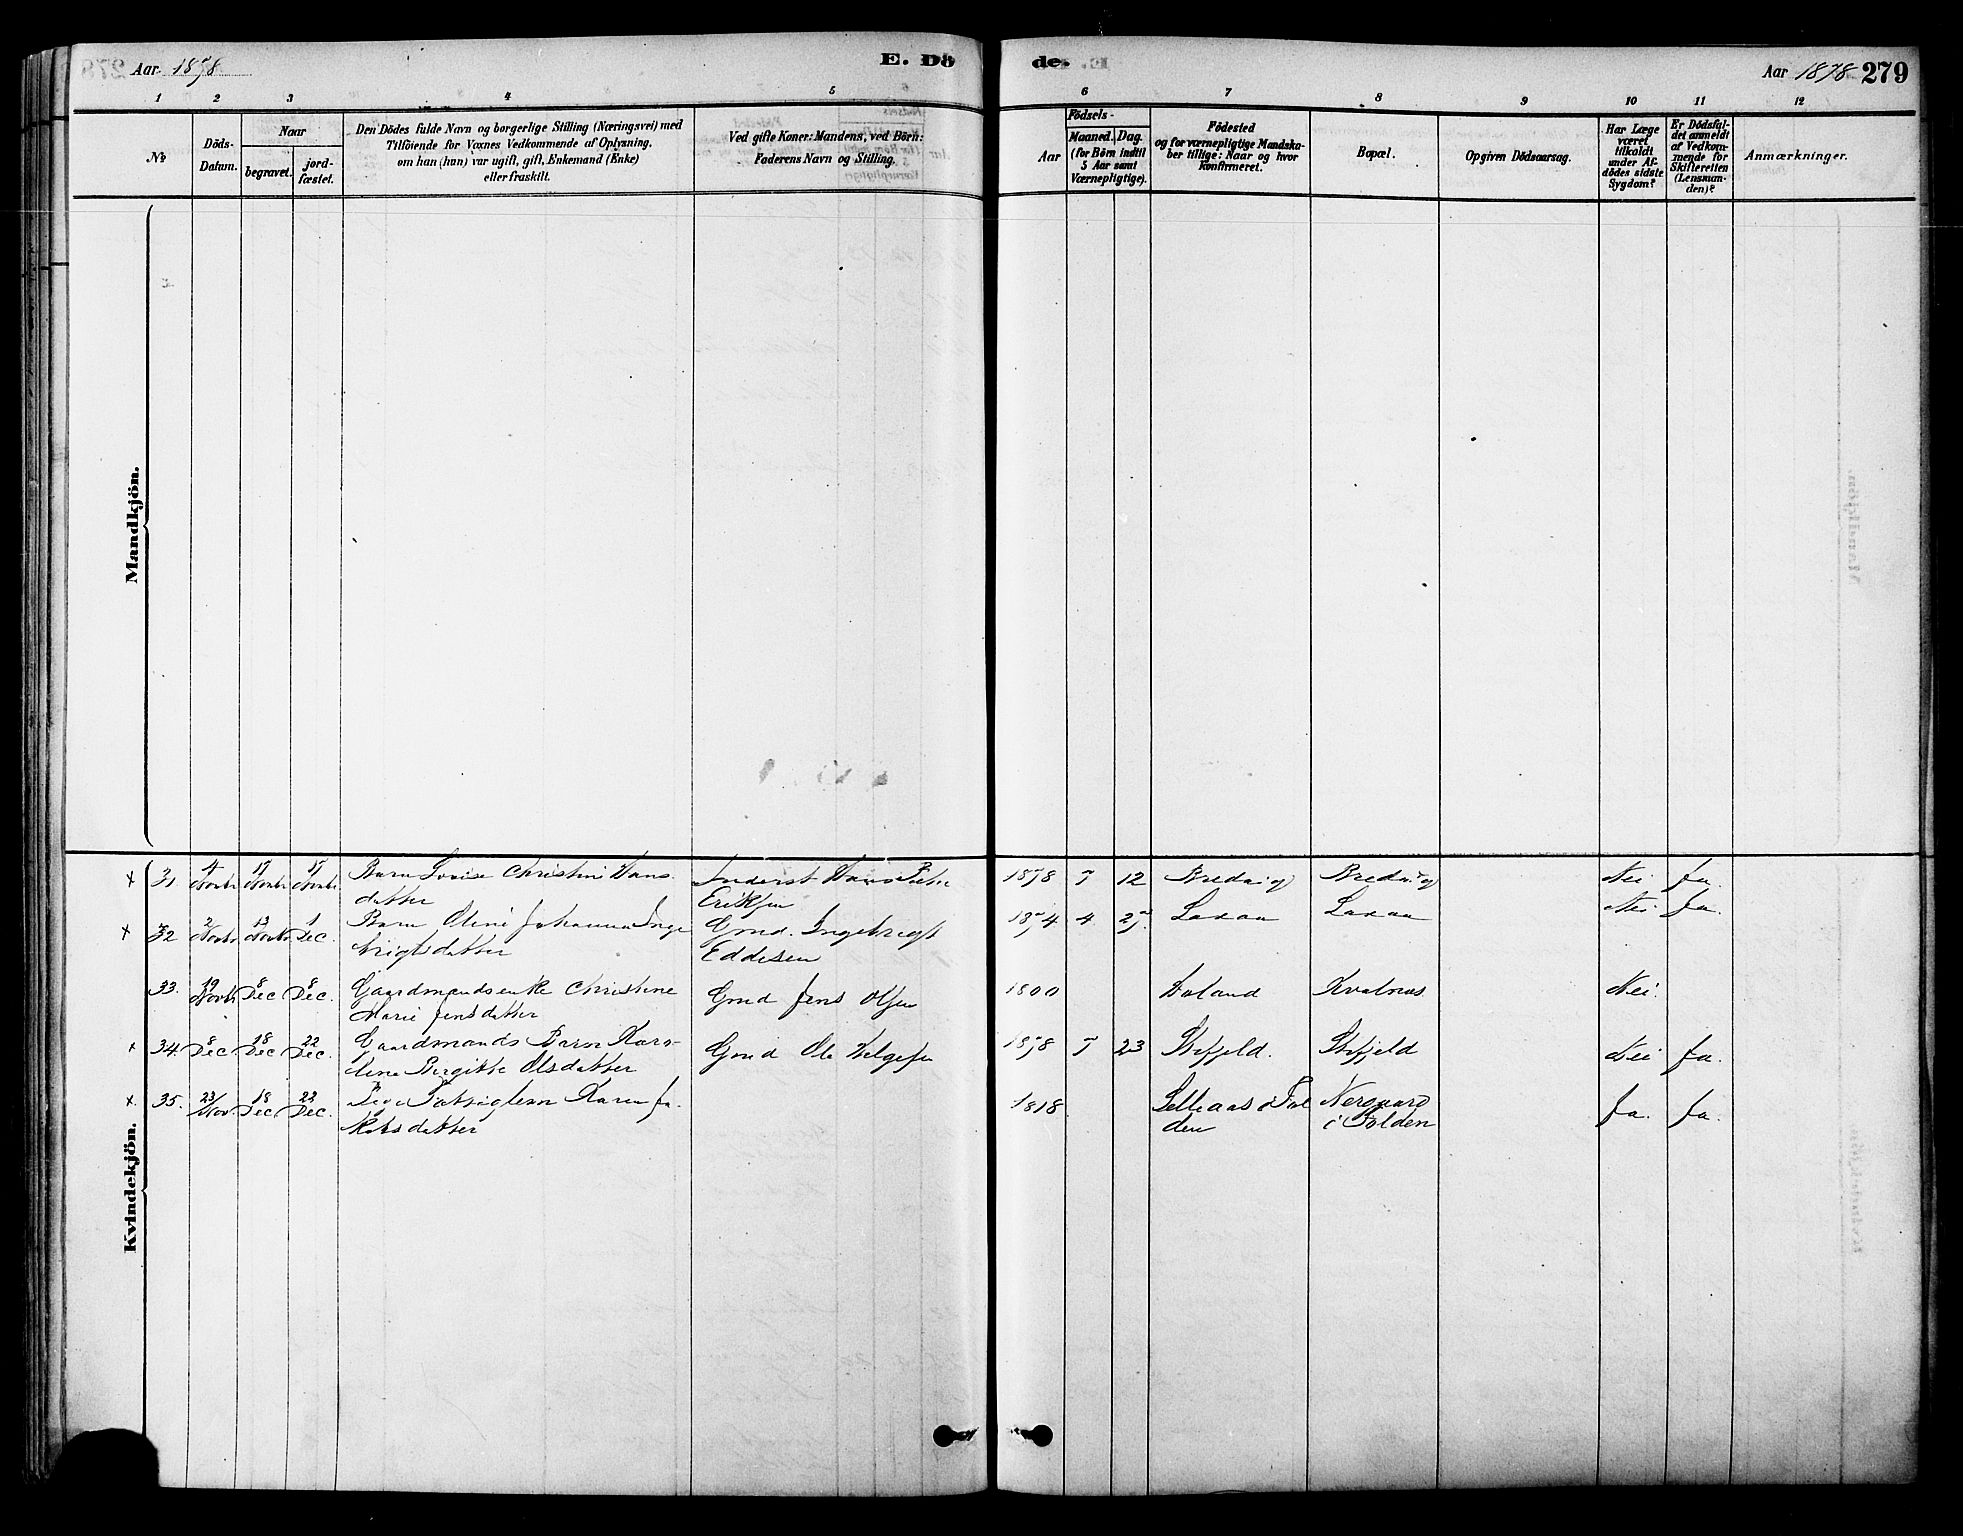 Aar 1878
E. Dö
de.
Aar 1878 279
1 2 3 4 5 6 7 8 9 10 11 12
No
Döds-
Datum.
Naar
begravet.
jord-
fæstet.
Den Dödes fulde Navn og borgerlige Stilling (Næringsvei) med
Tilföiende for Voxnes Vedkommende af Oplysning,
om han (hun) var ugift, gift, Enkemand (Enke)
eller fraskilt.
Ved gifte Koner: Mandens, ved Börn:
Faderens Navn og Stilling.
Födsels-
Aar
Maaned. Dag.
(for Börn indtil
5 Aar samt
Værnepligtige).
Födested
og for værnepligtige Mandska-
ber tillige: Naar og hvor
Konfirmeret.
Bopæl.
Opgiven Dödsaarsag.
Har Læge
været
tilkaldt
under Af-
dödes sidste
Sygdom?
Er Dödsfal-
det anmeldt
af Vedkom-
mende for
Skifteretten
(Lensman-
den)?
Anmærkninger.
Mandkjön.
Kvindekjön.
31 4 Novbr 17 Novbr Novbr Barn Lovise Christine Hans Inderst Hans Peter 1878 5 12 Bredvig Bredvig Nei Ja
datter Eriksen
32 2 Novbr 13 Novbr 1 Dec. Barn Oline Johanna Inge Gmd. Ingebregt 1874 4 Laxaa Laxaa Nei Ja.
brigtsdatter Eddesen
33. 19 Novbr 8 Dec 8 Dec. Gaardmandsenke Christine Gmd Jens Olsen 1800 Kvalnæs Nei.
Marie Jensdatter
34. 8 Dec. 18 Dec 22 Dec. Gaardmands Barn Karo- Gmd Ole Helgesen 1878 5 23 Stefjeld. Stefjeld Nei Ja.
line Birgitte Olsdatter
35. 23/Nov 18 Dec 22 Dec. Karen Ja- 1818 Nergaard Ja. Ja.
kobsdatter den i Folden